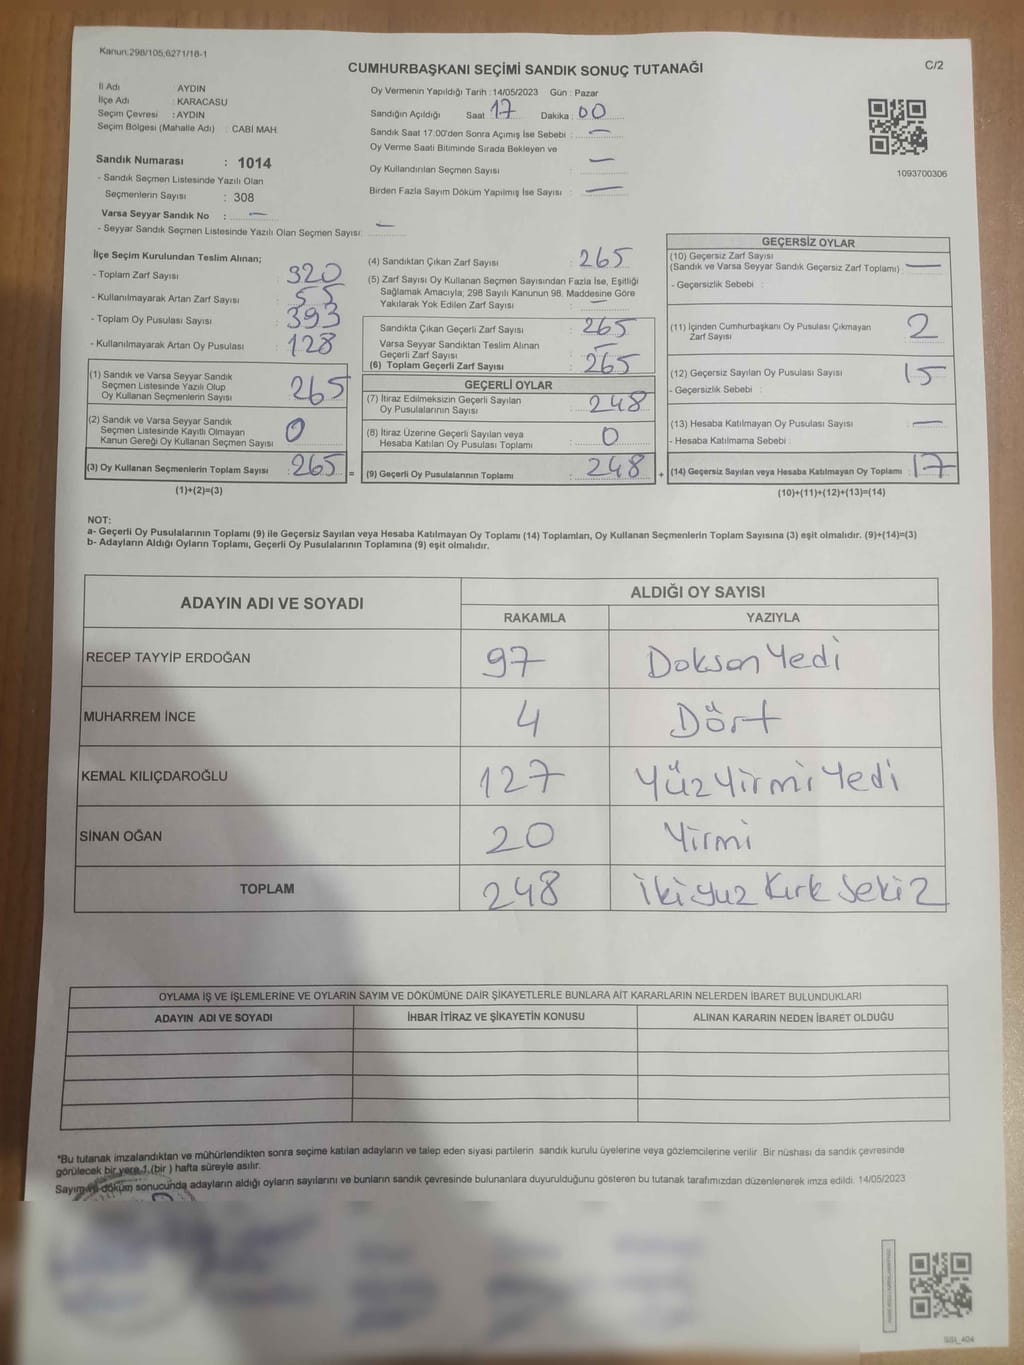 Kanun.298/105,6271/18-1
C/2
CUMHURBAŞKANI SEÇİMİ SANDIK SONUÇ TUTANAĞI
İl Adı : AYDIN
İlçe Adı : KARACASU
Seçim Çevresi : AYDIN
Seçim Bölgesi (Mahalle Adı) : CABİ MAH.
Sandık Numarası : 1014
- Sandık Seçmen Listesinde Yazılı Olan
Seçmenlerin Sayısı : 308
Varsa Seyyar Sandık No : —
- Seyyar Sandık Seçmen Listesinde Yazılı Olan Seçmen Sayısı: —
Oy Vermenin Yapıldığı Tarih : 14/05/2023 Gün : Pazar
Sandığın Açıldığı Saat : 17 Dakika : 00
Sandık Saat 17:00'den Sonra Açımış İse Sebebi : —
Oy Verme Saati Bitiminde Sırada Bekleyen ve
Oy Kullandırılan Seçmen Sayısı : —
Birden Fazla Sayım Döküm Yapılmış İse Sayısı : —
1093700306
İlçe Seçim Kurulundan Teslim Alınan;
- Toplam Zarf Sayısı : 320
- Kullanılmayarak Artan Zarf Sayısı : 55
- Toplam Oy Pusulası Sayısı : 393
- Kullanılmayarak Artan Oy Pusulası : 128
(1) Sandık ve Varsa Seyyar Sandık
Seçmen Listesinde Yazılı Olup
Oy Kullanan Seçmenlerin Sayısı : 265
(2) Sandık ve Varsa Seyyar Sandık
Seçmen Listesinde Kayıtlı Olmayan
Kanun Gereği Oy Kullanan Seçmen Sayısı : 0
(3) Oy Kullanan Seçmenlerin Toplam Sayısı : 265 =
(1)+(2)=(3)
(4) Sandıktan Çıkan Zarf Sayısı : 265
(5) Zarf Sayısı Oy Kullanan Seçmen Sayısından Fazla İse, Eşitliği
Sağlamak Amacıyla, 298 Sayılı Kanunun 98. Maddesine Göre
Yakılarak Yok Edilen Zarf Sayısı : —
Sandıkta Çıkan Geçerli Zarf Sayısı : 265
Varsa Seyyar Sandıktan Teslim Alınan
Geçerli Zarf Sayısı : —
(6) Toplam Geçerli Zarf Sayısı : 265
GEÇERLİ OYLAR
(7) İtiraz Edilmeksizin Geçerli Sayılan
Oy Pusulalarının Sayısı : 248
(8) İtiraz Üzerine Geçerli Sayılan veya
Hesaba Katılan Oy Pusulası Toplamı : 0
(9) Geçerli Oy Pusulalarının Toplamı : 248 +
GEÇERSİZ OYLAR
(10) Geçersiz Zarf Sayısı
(Sandık ve Varsa Seyyar Sandık Geçersiz Zarf Toplamı) : —
- Geçersizlik Sebebi :
(11) İçinden Cumhurbaşkanı Oy Pusulası Çıkmayan
Zarf Sayısı : 2
(12) Geçersiz Sayılan Oy Pusulası Sayısı : 15
- Geçersizlik Sebebi :
(13) Hesaba Katılmayan Oy Pusulası Sayısı : —
- Hesaba Katılmama Sebebi :
(14) Geçersiz Sayılan veya Hesaba Katılmayan Oy Toplamı : 17
(10)+(11)+(12)+(13)=(14)
NOT:
a- Geçerli Oy Pusulalarının Toplamı (9) ile Geçersiz Sayılan veya Hesaba Katılmayan Oy Toplamı (14) Toplamları, Oy Kullanan Seçmenlerin Toplam Sayısına (3) eşit olmalıdır. (9)+(14)=(3)
b- Adayların Aldığı Oyların Toplamı, Geçerli Oy Pusulalarının Toplamına (9) eşit olmalıdır.
ADAYIN ADI VE SOYADI ALDIĞI OY SAYISI
RAKAMLA YAZIYLA
RECEP TAYYİP ERDOĞAN 97 Doksan Yedi
MUHARREM İNCE 4 Dört
KEMAL KILIÇDAROĞLU 127 Yüz Yirmi Yedi
SİNAN OĞAN 20 Yirmi
TOPLAM 248 İkiyuz Kırk Sekiz
OYLAMA İŞ VE İŞLEMLERİNE VE OYLARIN SAYIM VE DÖKÜMÜNE DAİR ŞİKAYETLERLE BUNLARA AİT KARARLARIN NELERDEN İBARET BULUNDUKLARI
ADAYIN ADI VE SOYADI İHBAR İTİRAZ VE ŞİKAYETİN KONUSU ALINAN KARARIN NEDEN İBARET OLDUĞU
*Bu tutanak imzalandıktan ve mühürlendikten sonra seçime katılan adayların ve talep eden siyasi partilerin sandık kurulu üyelerine veya gözlemcilerine verilir .Bir nüshası da sandık çevresinde
görülecek bir yere 1 (bir ) hafta süreyle asılır.
Sayım ve döküm sonucunda adayların aldığı oyların sayılarını ve bunların sandık çevresinde bulunanlara duyurulduğunu gösteren bu tutanak tarafımızdan düzenlenerek imza edildi. 14/05/2023
SSI_404